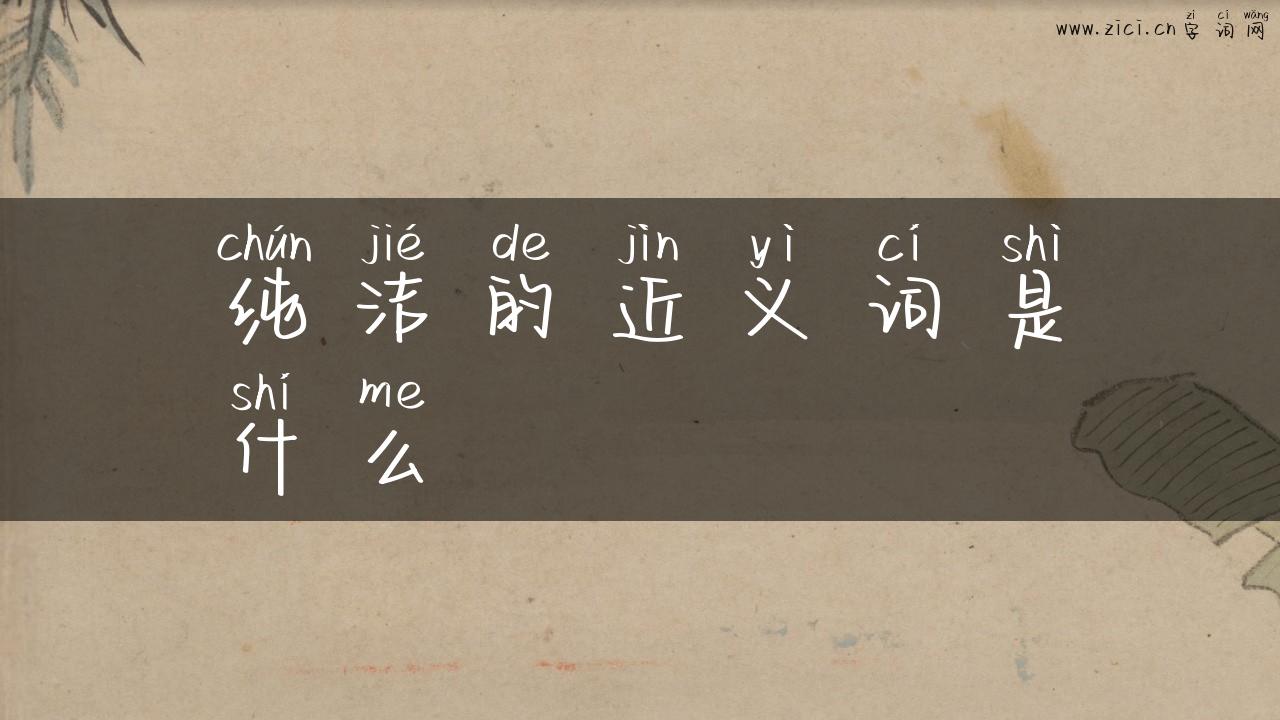 zì cí wǎng
www.zici.cn 字词网
chún jié de jìn yì cí shì
纯洁的近义词是
shí me
什么